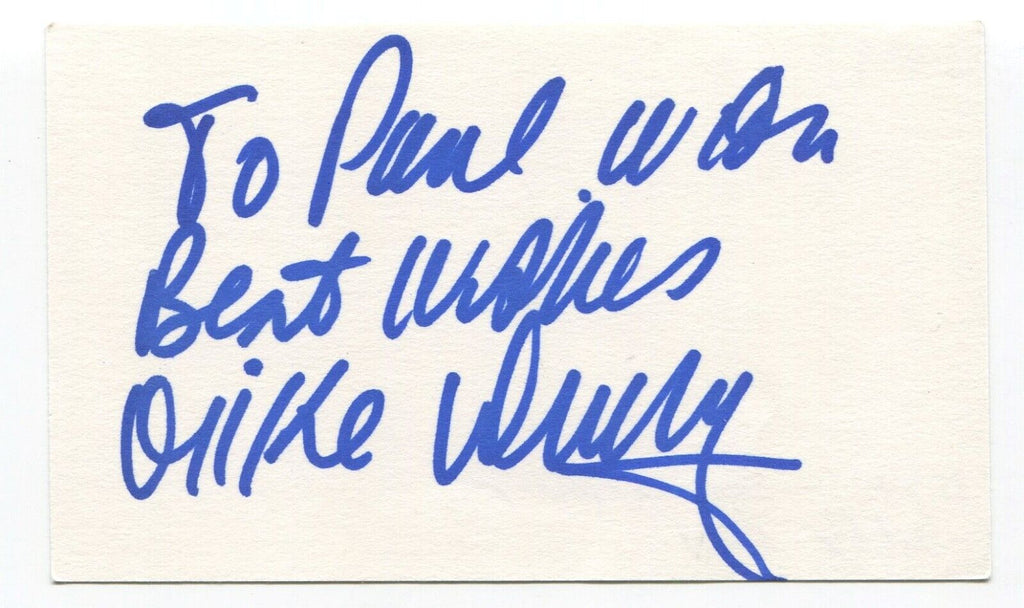 To Paul with
Best Wishes
Mike